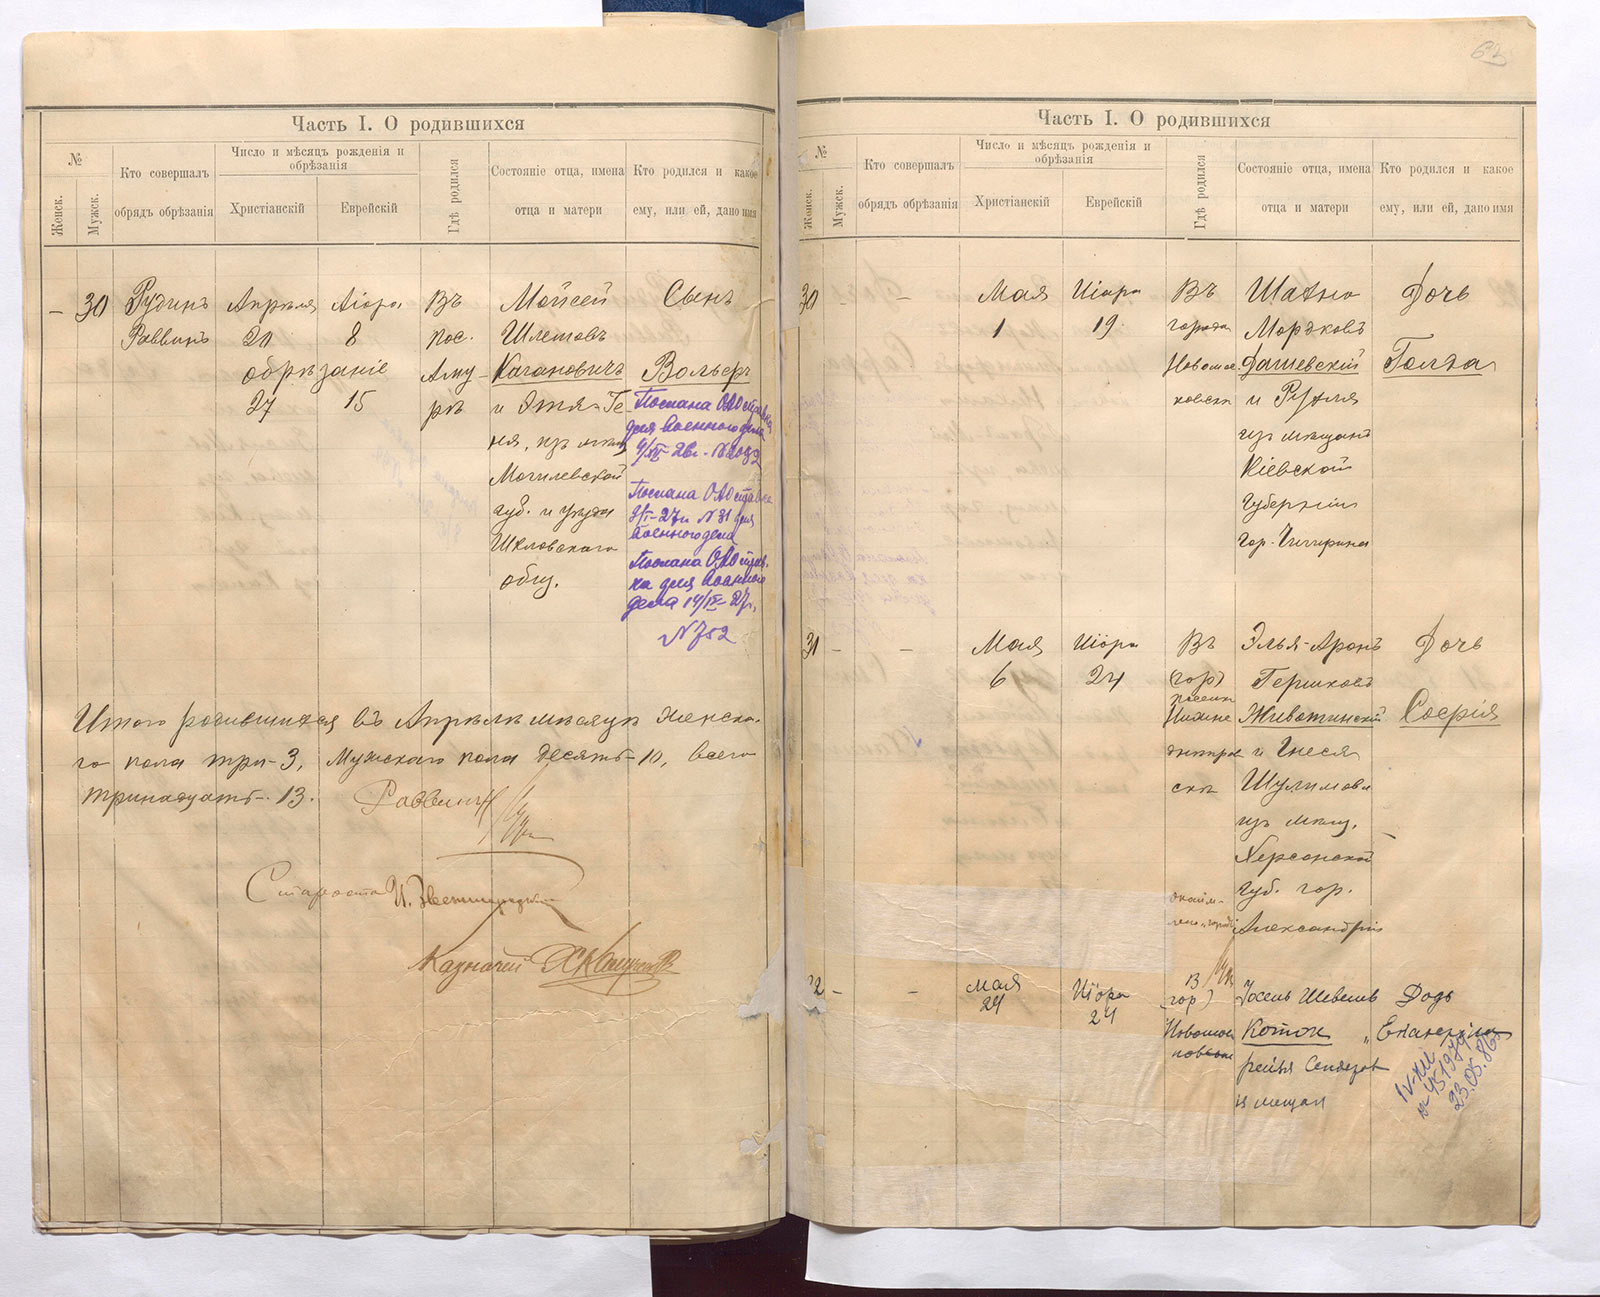 Часть I. О родившихся
№
Женск.
Мужск.
Кто совершалъ
обрядъ обрѣзанія
Число и мѣсяцъ рожденія и
обрѣзанія
Христіанскій
Еврейскій
Гдѣ родился
Состояніе отца, имена
отца и матери
Кто родился и какое
ему, или ей, дано имя
– 30
Рудинъ
Раввинъ
Апрѣля
20
обрѣзаніе
27
Аіора
8
15
Въ
пос.
Аму-
рѣ
Мойсей
Шлемовъ
Кагановичъ
и Этя-Ге-
ня, изъ
Могилевской
губ. и уѣзда
Шкловскаго
общ.
Сынъ
Вольфъ
Послана ОАО ставка
для военного дела
4/XII-26г. - №
Послана ОАО ставка
9/I-27г. №31 для
военного дела
Послана ОАО став-
ка для военного
дела 14/IX-27г.
№752
Итого родившихся въ Апрѣлѣ мѣсяцѣ женска-
го пола три-3, Мужскаго пола десять-10, всего
тринадцать-13. Раввинъ
Староста И.
Казначей
62
Часть I. О родившихся
№
Женск.
Мужск.
Кто совершалъ
обрядъ обрѣзанія
Число и мѣсяцъ рожденія и
обрѣзанія
Христіанскій
Еврейскій
Гдѣ родился
Состояніе отца, имена
отца и матери
Кто родился и какое
ему, или ей, дано имя
30 – –
Мая
1
Иіара
19
Въ
городѣ
Новомос-
ковскѣ
Шахно
Мордковъ
Дашевскій
и Рухля
изъ мѣщанъ
Кіевской
Губерніи
гор. Чигирина
Дочь
Голда
31 – –
Мая
6
Иіора
24
Въ
(гор)
поселкѣ
Нижне
днѣпров
скѣ
Элья-Аронъ
Гершковъ
Животинскій
и Гнеся
Шулимова
изъ мѣщ.
Херсонской
Губ. гор.
Александріи
Дочь
Софія
32 – –
Мая
24
Иіора
24
В
(гор)
Новомос
ковске
Иосель Шевелев
Коток
из мещан
Дочь
23.05.86